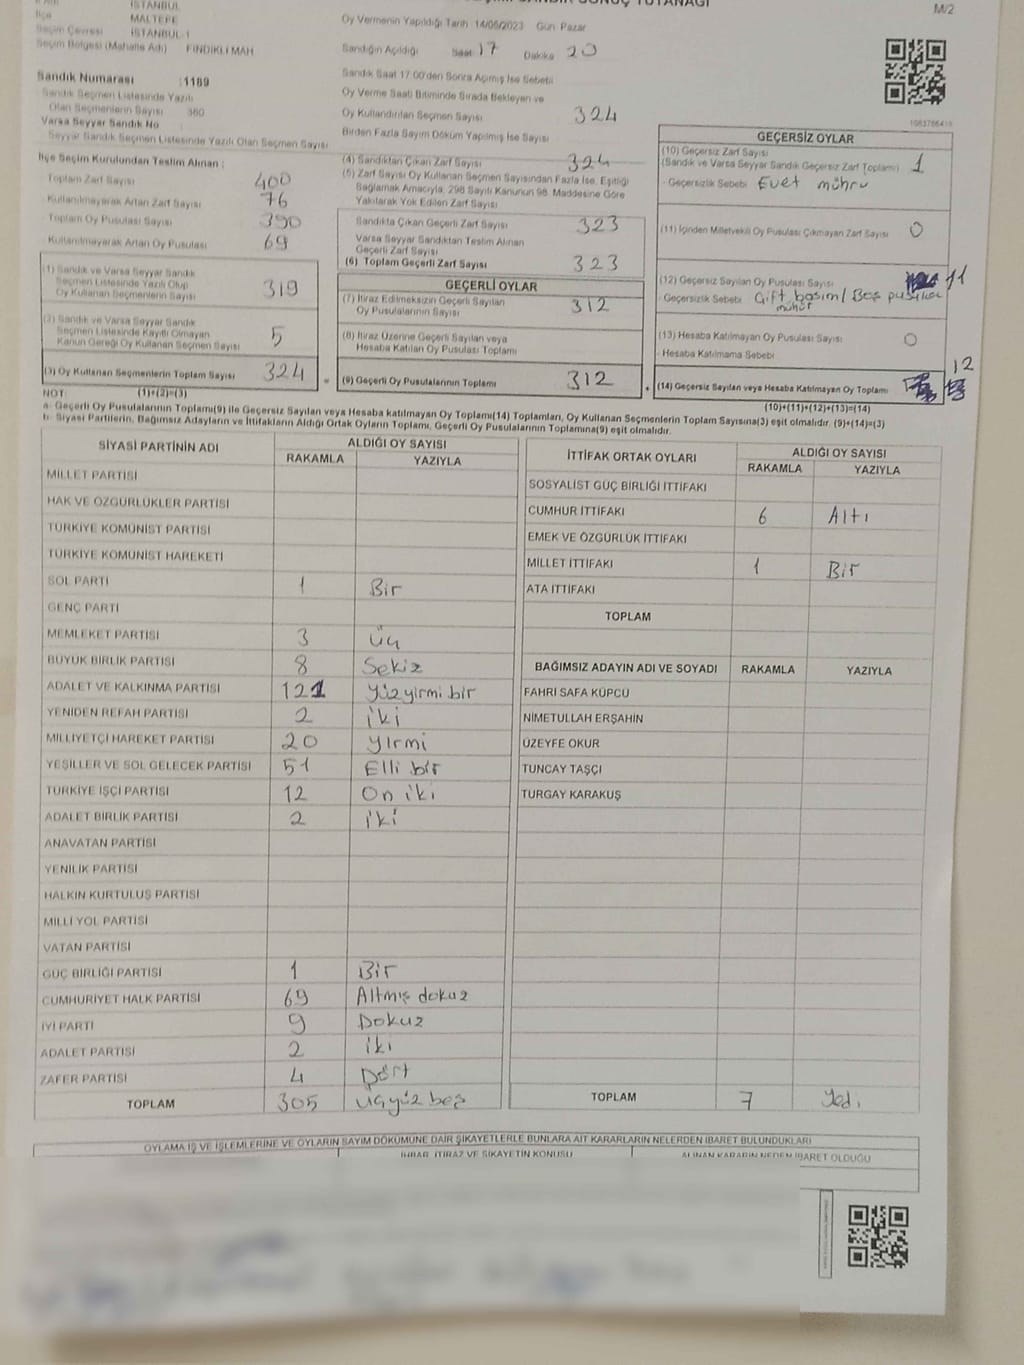 İSTANBUL
İlçe MALTEPE
Seçim Çevresi İSTANBUL-1
Seçim Bölgesi (Mahalle Adı) FINDIKLI MAH
M/2
Oy Vermenin Yapıldığı Tarih 14/05/2023 Gün Pazar
Sandığın Açıldığı Saat 17 Dakika 20
Sandık Saat 17:00'den Sonra Açımış İse Sebebi
Sandık Numarası :1189
Sandık Seçmen Listesinde Yazılı
Olan Seçmenlerin Sayısı 380
Varsa Seyyar Sandık No
Seyyar Sandık Seçmen Listesinde Yazılı Olan Seçmen Sayısı
Oy Verme Saati Bitiminde Sırada Bekleyen ve
Oy Kullandırılan Seçmen Sayısı 324
Birden Fazla Sayım Döküm Yapılmış İse Sayısı
İlçe Seçim Kurulundan Teslim Alınan :
Toplam Zarf Sayısı 400
- Kullanılmayarak Artan Zarf Sayısı 76
- Toplam Oy Pusulası Sayısı 390
- Kullanılmayarak Artan Oy Pusulası 69
(1) Sandık ve Varsa Seyyar Sandık
Seçmen Listesinde Yazılı Olup
Oy Kullanan Seçmenlerin Sayısı 319
(2) Sandık ve Varsa Seyyar Sandık
Seçmen Listesinde Kayıtlı Olmayan
Kanun Gereği Oy Kullanan Seçmen Sayısı 5
(3) Oy Kullanan Seçmenlerin Toplam Sayısı 324
(1)+(2)=(3)
(4) Sandıktan Çıkan Zarf Sayısı 324
(5) Zarf Sayısı Oy Kullanan Seçmen Sayısından Fazla İse, Eşitliği
Sağlamak Amacıyla, 298 Sayılı Kanunun 98. Maddesine Göre
Yakılarak Yok Edilen Zarf Sayısı
Sandıkta Çıkan Geçerli Zarf Sayısı 323
Varsa Seyyar Sandıktan Teslim Alınan
Geçerli Zarf Sayısı
(6) Toplam Geçerli Zarf Sayısı 323
GEÇERLİ OYLAR
(7) İtiraz Edilmeksizin Geçerli Sayılan
Oy Pusulalarının Sayısı 312
(8) İtiraz Üzerine Geçerli Sayılan veya
Hesaba Katılan Oy Pusulası Toplamı
(9) Geçerli Oy Pusulalarının Toplamı 312
GEÇERSİZ OYLAR
(10) Geçersiz Zarf Sayısı
(Sandık ve Varsa Seyyar Sandık Geçersiz Zarf Toplamı) 1
- Geçersizlik Sebebi Evet mührü
(11) İçinden Milletvekili Oy Pusulası Çıkmayan Zarf Sayısı 0
(12) Geçersiz Sayılan Oy Pusulası Sayısı 11
- Geçersizlik Sebebi Çift basım / Boş pusula
mühür
(13) Hesaba Katılmayan Oy Pusulası Sayısı 0
- Hesaba Katılmama Sebebi
12
(14) Geçersiz Sayılan veya Hesaba Katılmayan Oy Toplamı
(10)+(11)+(12)+(13)=(14)
NOT:
a- Geçerli Oy Pusulalarının Toplamı(9) ile Geçersiz Sayılan veya Hesaba katılmayan Oy Toplamı(14) Toplamları, Oy Kullanan Seçmenlerin Toplam Sayısına(3) eşit olmalıdır. (9)+(14)=(3)
b- Siyasi Partilerin, Bağımsız Adayların ve İttifakların Aldığı Ortak Oyların Toplamı, Geçerli Oy Pusulalarının Toplamına(9) eşit olmalıdır.
SİYASİ PARTİNİN ADI ALDIĞI OY SAYISI
RAKAMLA YAZIYLA
MİLLET PARTİSİ
HAK VE ÖZGÜRLÜKLER PARTİSİ
TÜRKİYE KOMÜNİST PARTİSİ
TÜRKİYE KOMÜNİST HAREKETİ
SOL PARTİ 1 Bir
GENÇ PARTİ
MEMLEKET PARTİSİ 3 Üç
BÜYÜK BİRLİK PARTİSİ 8 Sekiz
ADALET VE KALKINMA PARTİSİ 121 Yüzyirmi bir
YENİDEN REFAH PARTİSİ 2 İki
MİLLİYETÇİ HAREKET PARTİSİ 20 Yirmi
YEŞİLLER VE SOL GELECEK PARTİSİ 51 Elli bir
TÜRKİYE İŞÇİ PARTİSİ 12 On iki
ADALET BİRLİK PARTİSİ 2 İki
ANAVATAN PARTİSİ
YENİLİK PARTİSİ
HALKIN KURTULUŞ PARTİSİ
MİLLİ YOL PARTİSİ
VATAN PARTİSİ
GÜÇ BİRLİĞİ PARTİSİ 1 Bir
CUMHURİYET HALK PARTİSİ 69 Altmış dokuz
İYİ PARTİ 9 Dokuz
ADALET PARTİSİ 2 İki
ZAFER PARTİSİ 4 Dört
TOPLAM 305 Üçyüz beş
İTTİFAK ORTAK OYLARI ALDIĞI OY SAYISI
RAKAMLA YAZIYLA
SOSYALİST GÜÇ BİRLİĞİ İTTİFAKI
CUMHUR İTTİFAKI 6 Altı
EMEK VE ÖZGÜRLÜK İTTİFAKI
MİLLET İTTİFAKI 1 Bir
ATA İTTİFAKI
TOPLAM
BAĞIMSIZ ADAYIN ADI VE SOYADI RAKAMLA YAZIYLA
FAHRİ SAFA KÜPCÜ
NİMETULLAH ERŞAHİN
ÜZEYFE OKUR
TUNCAY TAŞÇI
TURGAY KARAKUŞ
TOPLAM 7 Yedi
OYLAMA İŞ VE İŞLEMLERİNE VE OYLARIN SAYIM DÖKÜMÜNE DAİR ŞİKAYETLERLE BUNLARA AİT KARARLARIN NELERDEN İBARET BULUNDUKLARI
İHBAR, İTİRAZ VE ŞİKAYETİN KONUSU ALINAN KARARIN NEDEN İBARET OLDUĞU